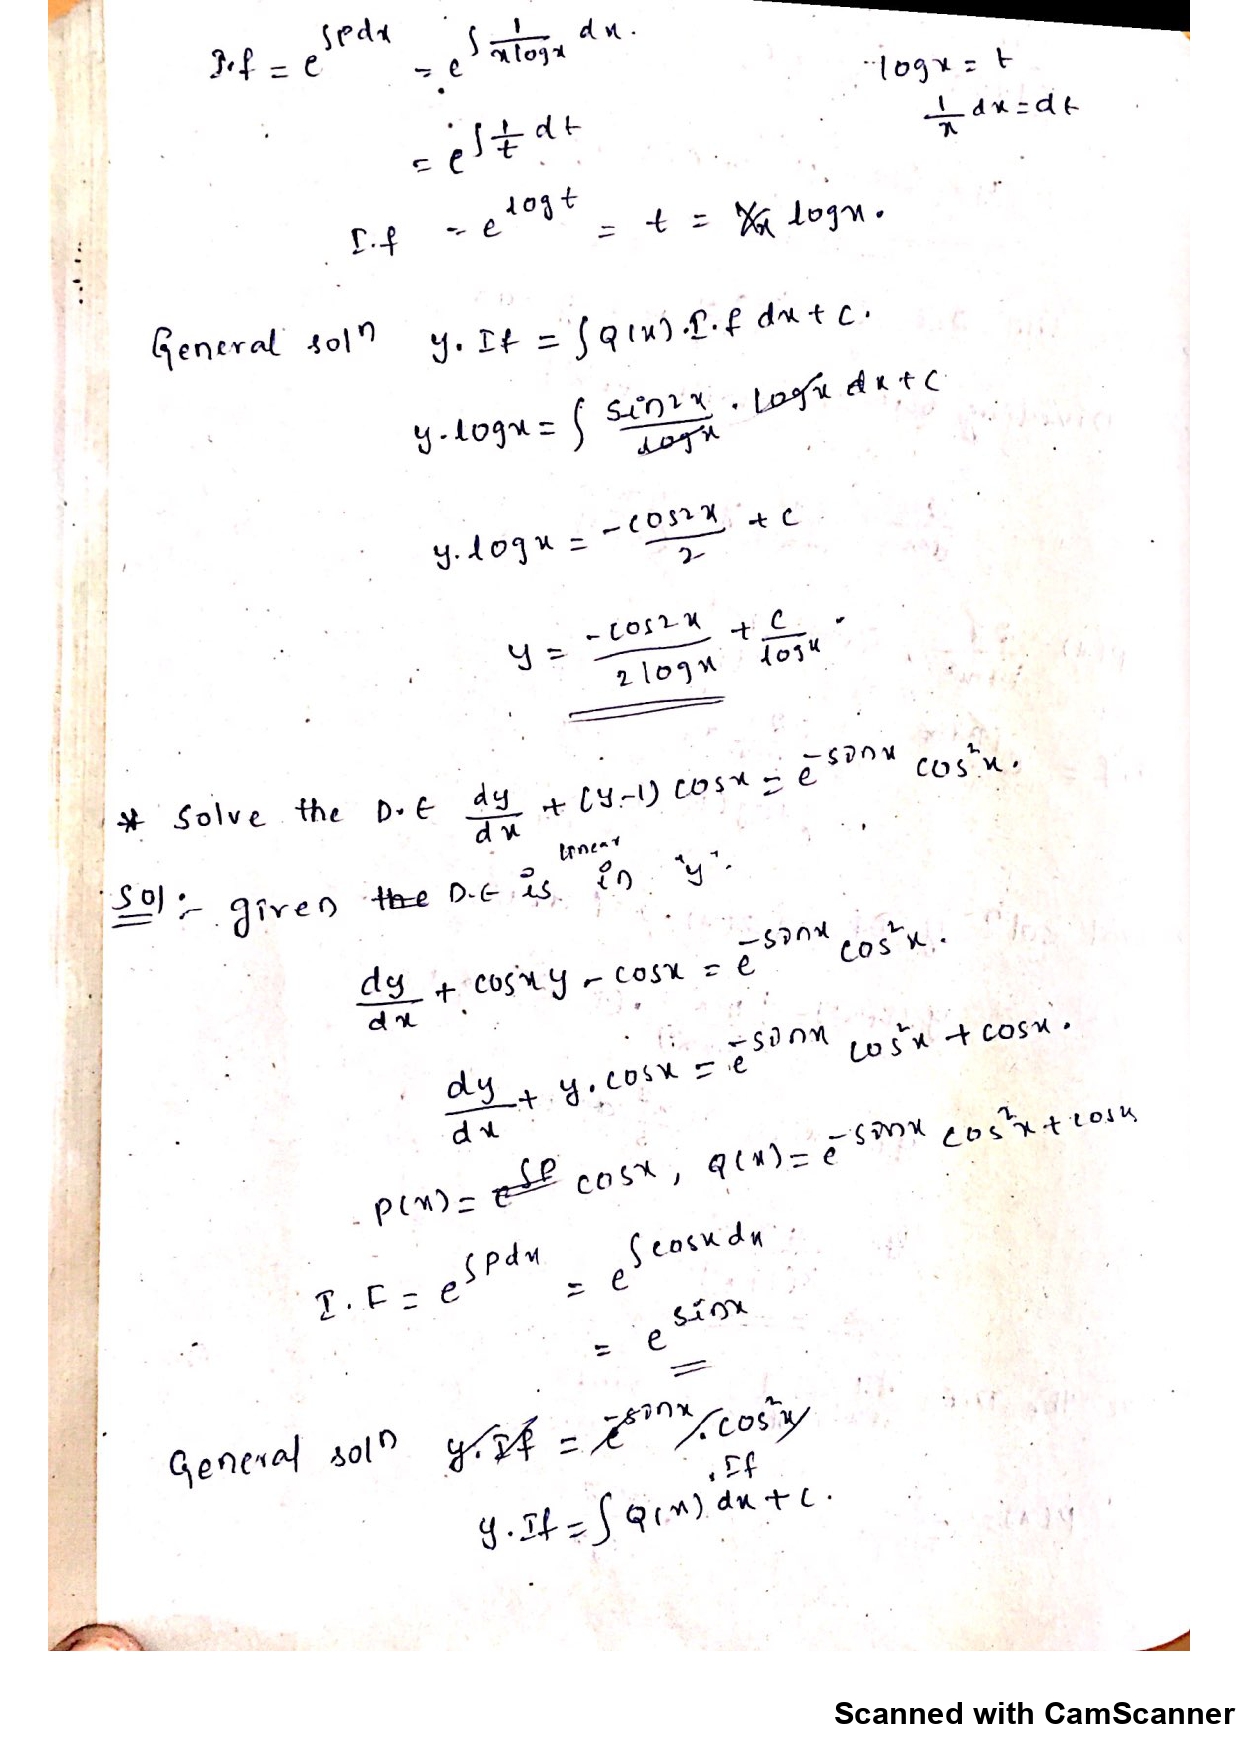 I.f = e^∫Pdx = e^∫ 1/(x log x) dx.
log x = t
1/x dx = dt
= e^∫ 1/t dt
I.f = e^log t = t = log x.
General solⁿ y. If = ∫Q(x).I.f dx + c.
y.log x = ∫ sin2x/log x . log x dx + c
y.log x = -cos2x/2 + c
y = -cos2x/(2 log x) + c/log x.
* Solve the D.E dy/dx + (y-1) cosx = e^-sinx cos²x.
Sol:- given the D.E is linear in "y".
dy/dx + cosx y - cosx = e^-sinx cos²x.
dy/dx + y.cosx = e^-sinx cos²x + cosx.
P(x) = e^∫P cosx, Q(x) = e^-sinx cos²x + cosx
I.F = e^∫Pdx = e^∫cosx dx
= e^sinx
General solⁿ y.If = e^-sinx . cos²x
y.If = ∫ Q(x) .If dx + c.
Scanned with CamScanner